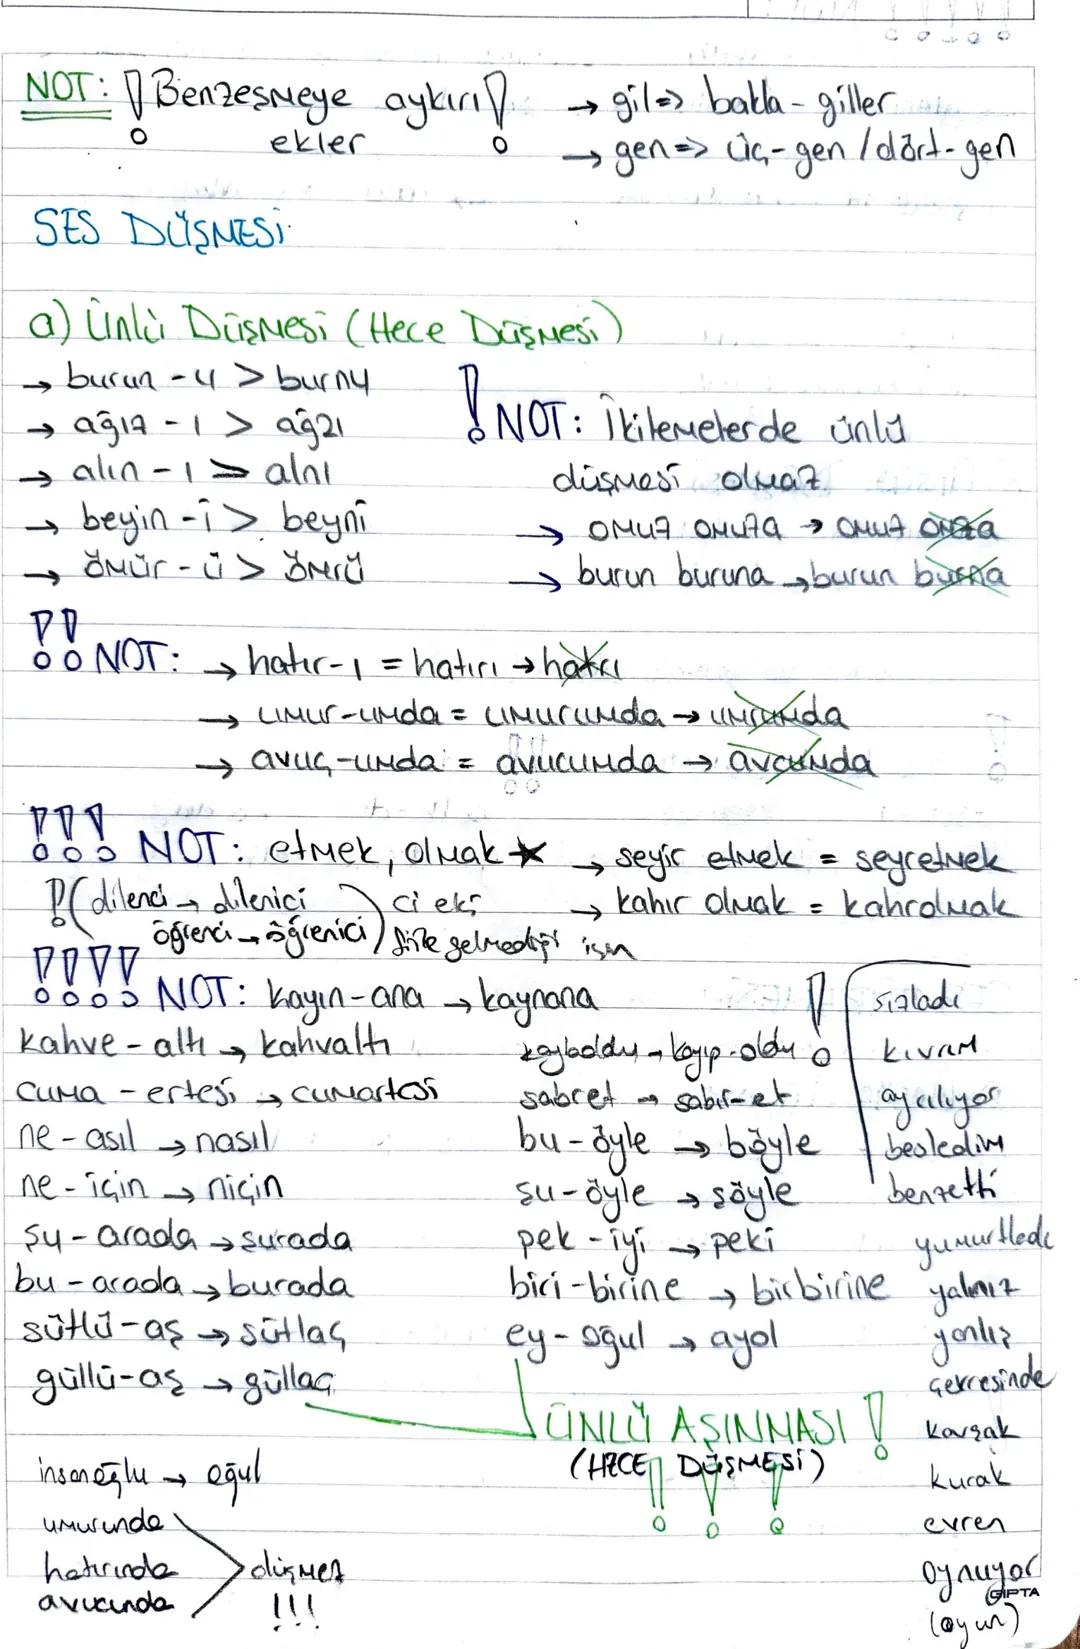 NOT: ! Benzeşmeye aykırı ! → gil => bakla - giller
ekler → gen => üç-gen / dört-gen
SES DÜŞMESİ
a) Ünlü Düşmesi (Hece Düşmesi)
→ burun - u > burnu
→ ağız - ı > ağzı
→ alın - ı > alnı
→ beyin - i > beyni
→ ömür - ü > ömrü
! NOT: İkilemelerde ünlü
düşmesi olmaz
→ omuz omuza → omuz omza
→ burun buruna → burun burna
!! NOT: → hatır-ı = hatırı → hatrı
→ umur-umda = umurumda → umrumda
→ avuç-umda = avucumda → avcumda
!!! NOT: etmek, olmak * → seyir etmek = seyretmek
→ kahır olmak = kahrolmak
! ( dilenci → dilenici
öğrenci → öğrenici ) ci eki
fiile gelmediği için
!!!! NOT: kayın-ana → kaynana
kahve - altı → kahvaltı
cuma - ertesi → cumartesi
ne - asıl → nasıl
ne - için → niçin
şu - arada → şurada
bu - arada → burada
sütlü - aş → sütlaç
güllü-aş → güllaç
kayboldu → kayıp-oldu !
sabret → sabır-et
bu - öyle → böyle
şu - öyle → şöyle
pek - iyi → peki
biri - birine → birbirine
ey - oğul → ayol
ÜNLÜ AŞINMASI !
(HECE DÜŞMESİ)
!!!
insanoğlu → oğul
umurunda
hatırında
avucunda
düşmez
!!!
sızladı
kıvrım
ayrılıyor
besledim
benzetti
yumurtladı
yalnız
yanlış
çevresinde
kavşak
kurak
evren
oynuyor
(oyun)
GIPTA